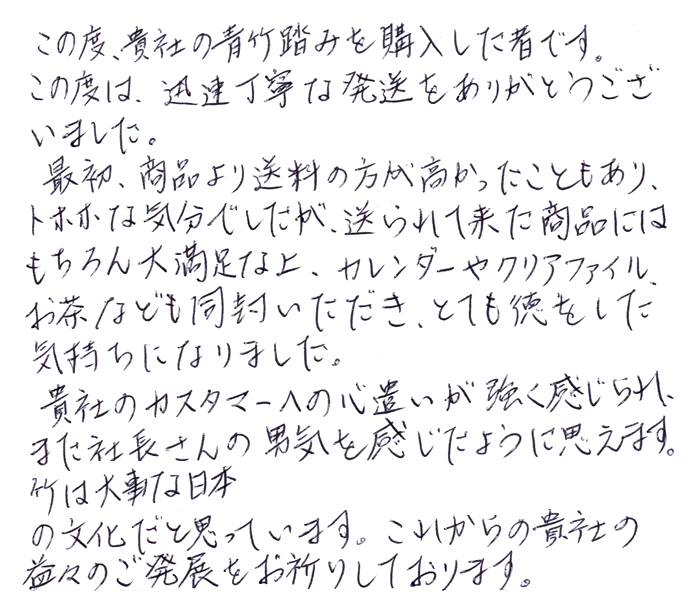 この度、貴社の青竹踏みを購入した者です。
この度は、迅速丁寧な発送をありがとうござ
いました。
最初、商品より送料の方が高かったこともあり、
トホホな気分でしたが、送られて来た商品には
もちろん大満足な上、カレンダーやクリアファイル、
お茶なども同封いただき、とても徳をした
気持ちになりました。
貴社のカスタマーへの心遣いが強く感じられ、
また社長さんの男気を感じたように思えます。
竹は大事な日本
の文化だと思っています。これからの貴社の
益々のご発展をお祈りしております。